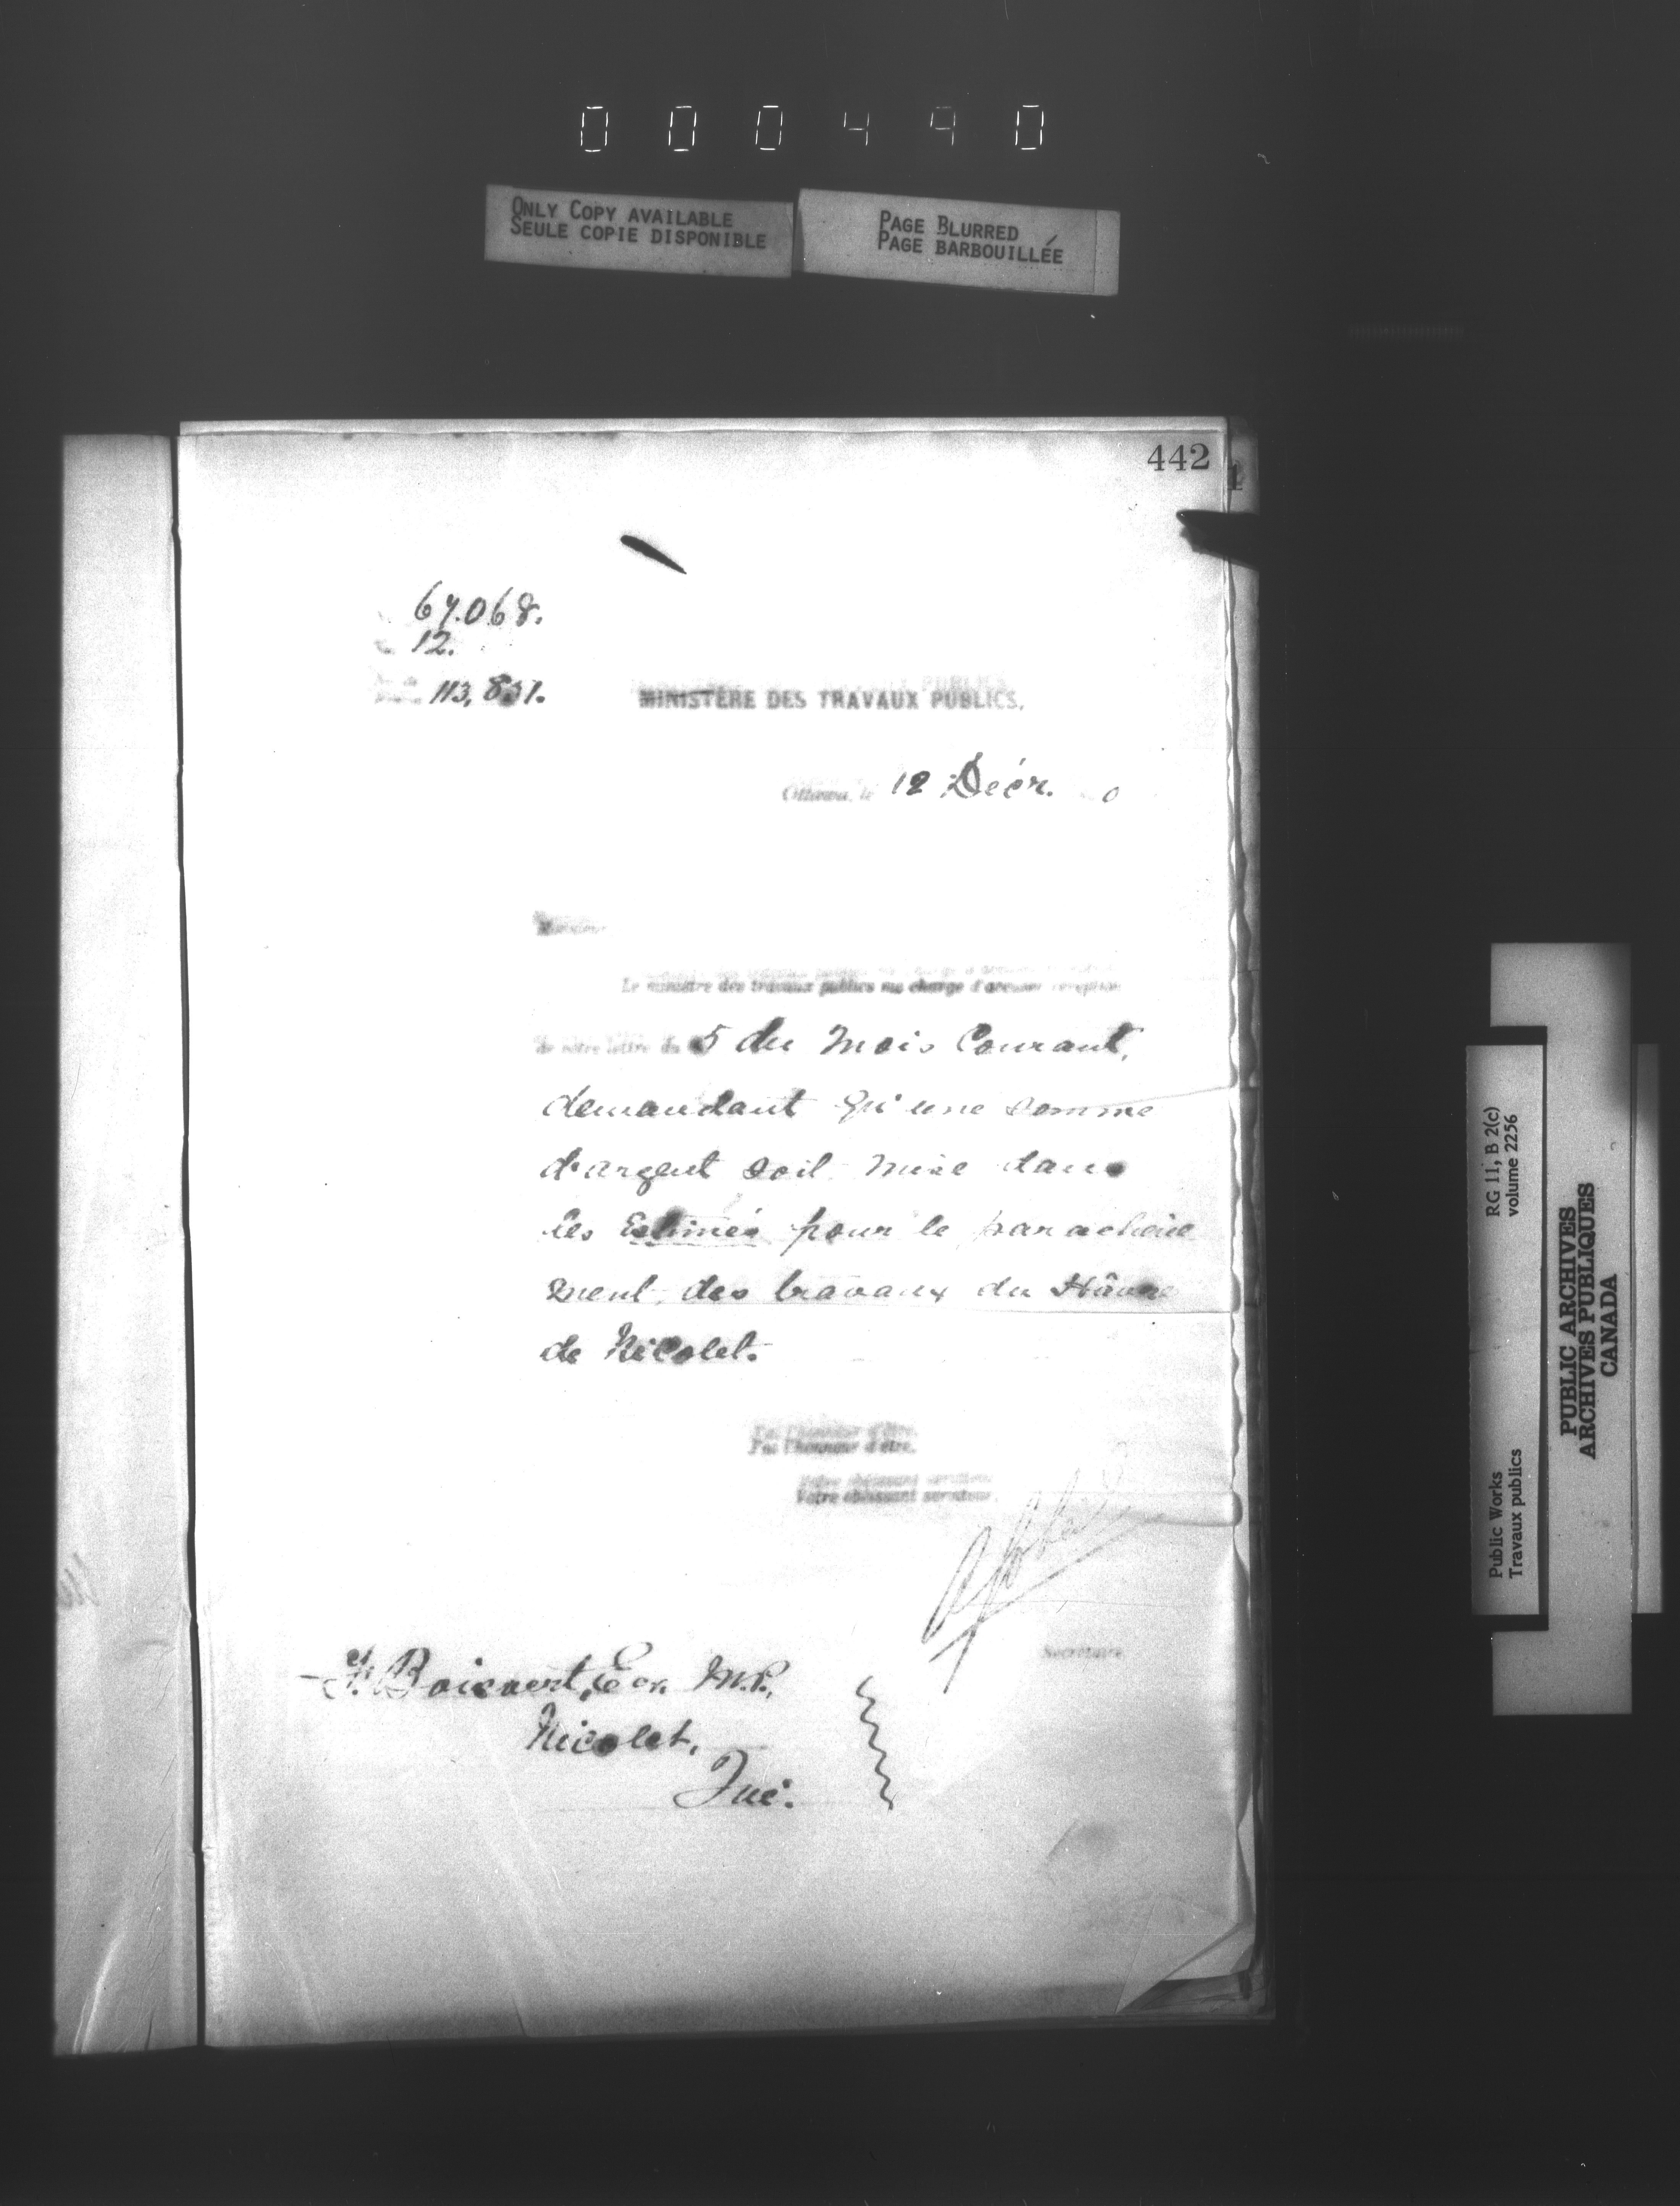 000490
ONLY COPY AVAILABLE
SEULE COPIE DISPONIBLE
PAGE BLURRED
PAGE BARBOUILLÉE
442
67.068.
12.
113,831.
MINISTÈRE DES TRAVAUX PUBLICS.
Ottawa, le 12 Décr. 0
Monsieur
Le ministre des travaux publics me charge d'accuser réception
de votre lettre du 5 du mois Courant,
demandant qu'une somme
d'argent soit mise dans
les Estimés pour le parachève
ment des travaux du Hâvre
de Nicolet.
J'ai l'honneur d'être,
Votre obéissant serviteur,
Secrétaire
F. Boisvert, Ecr. M.P.,
Nicolet,
Qué.
RG 11, B 2(c)
volume 2256
Public Works
Travaux publics
PUBLIC ARCHIVES
ARCHIVES PUBLIQUES
CANADA